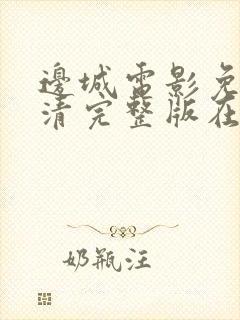 邊城電影免
清完整版在
奶瓶汪